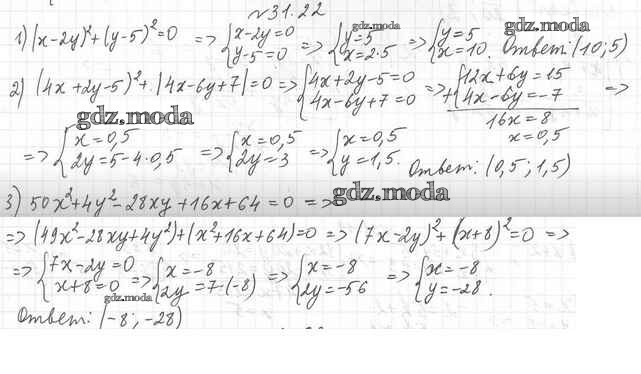 №31.22
1) (x-2y)²+(y-5)²=0 => {x-2y=0 y-5=0 => {y=5 x=2·5 => {y=5 x=10. Ответ: (10;5)
gdz.moda gdz.moda
2) (4x+2y-5)²+|4x-6y+7|=0 => {4x+2y-5=0 4x-6y+7=0 => +{12x+6y=15 4x-6y=-7 =>
gdz.moda
16x=8
x=0,5
=> {x=0,5 2y=5-4·0,5 => {x=0,5 2y=3 => {x=0,5 y=1,5. Ответ: (0,5; 1,5)
gdz.moda
3) 50x²+4y²-28xy+16x+64=0 =>
=> (49x²-28xy+4y²)+(x²+16x+64)=0 => (7x-2y)²+(x+8)²=0 =>
=> {7x-2y=0 x+8=0 => {x=-8 2y=7·(-8) => {x=-8 2y=-56 => {x=-8 y=-28.
gdz.moda
Ответ: (-8; -28)